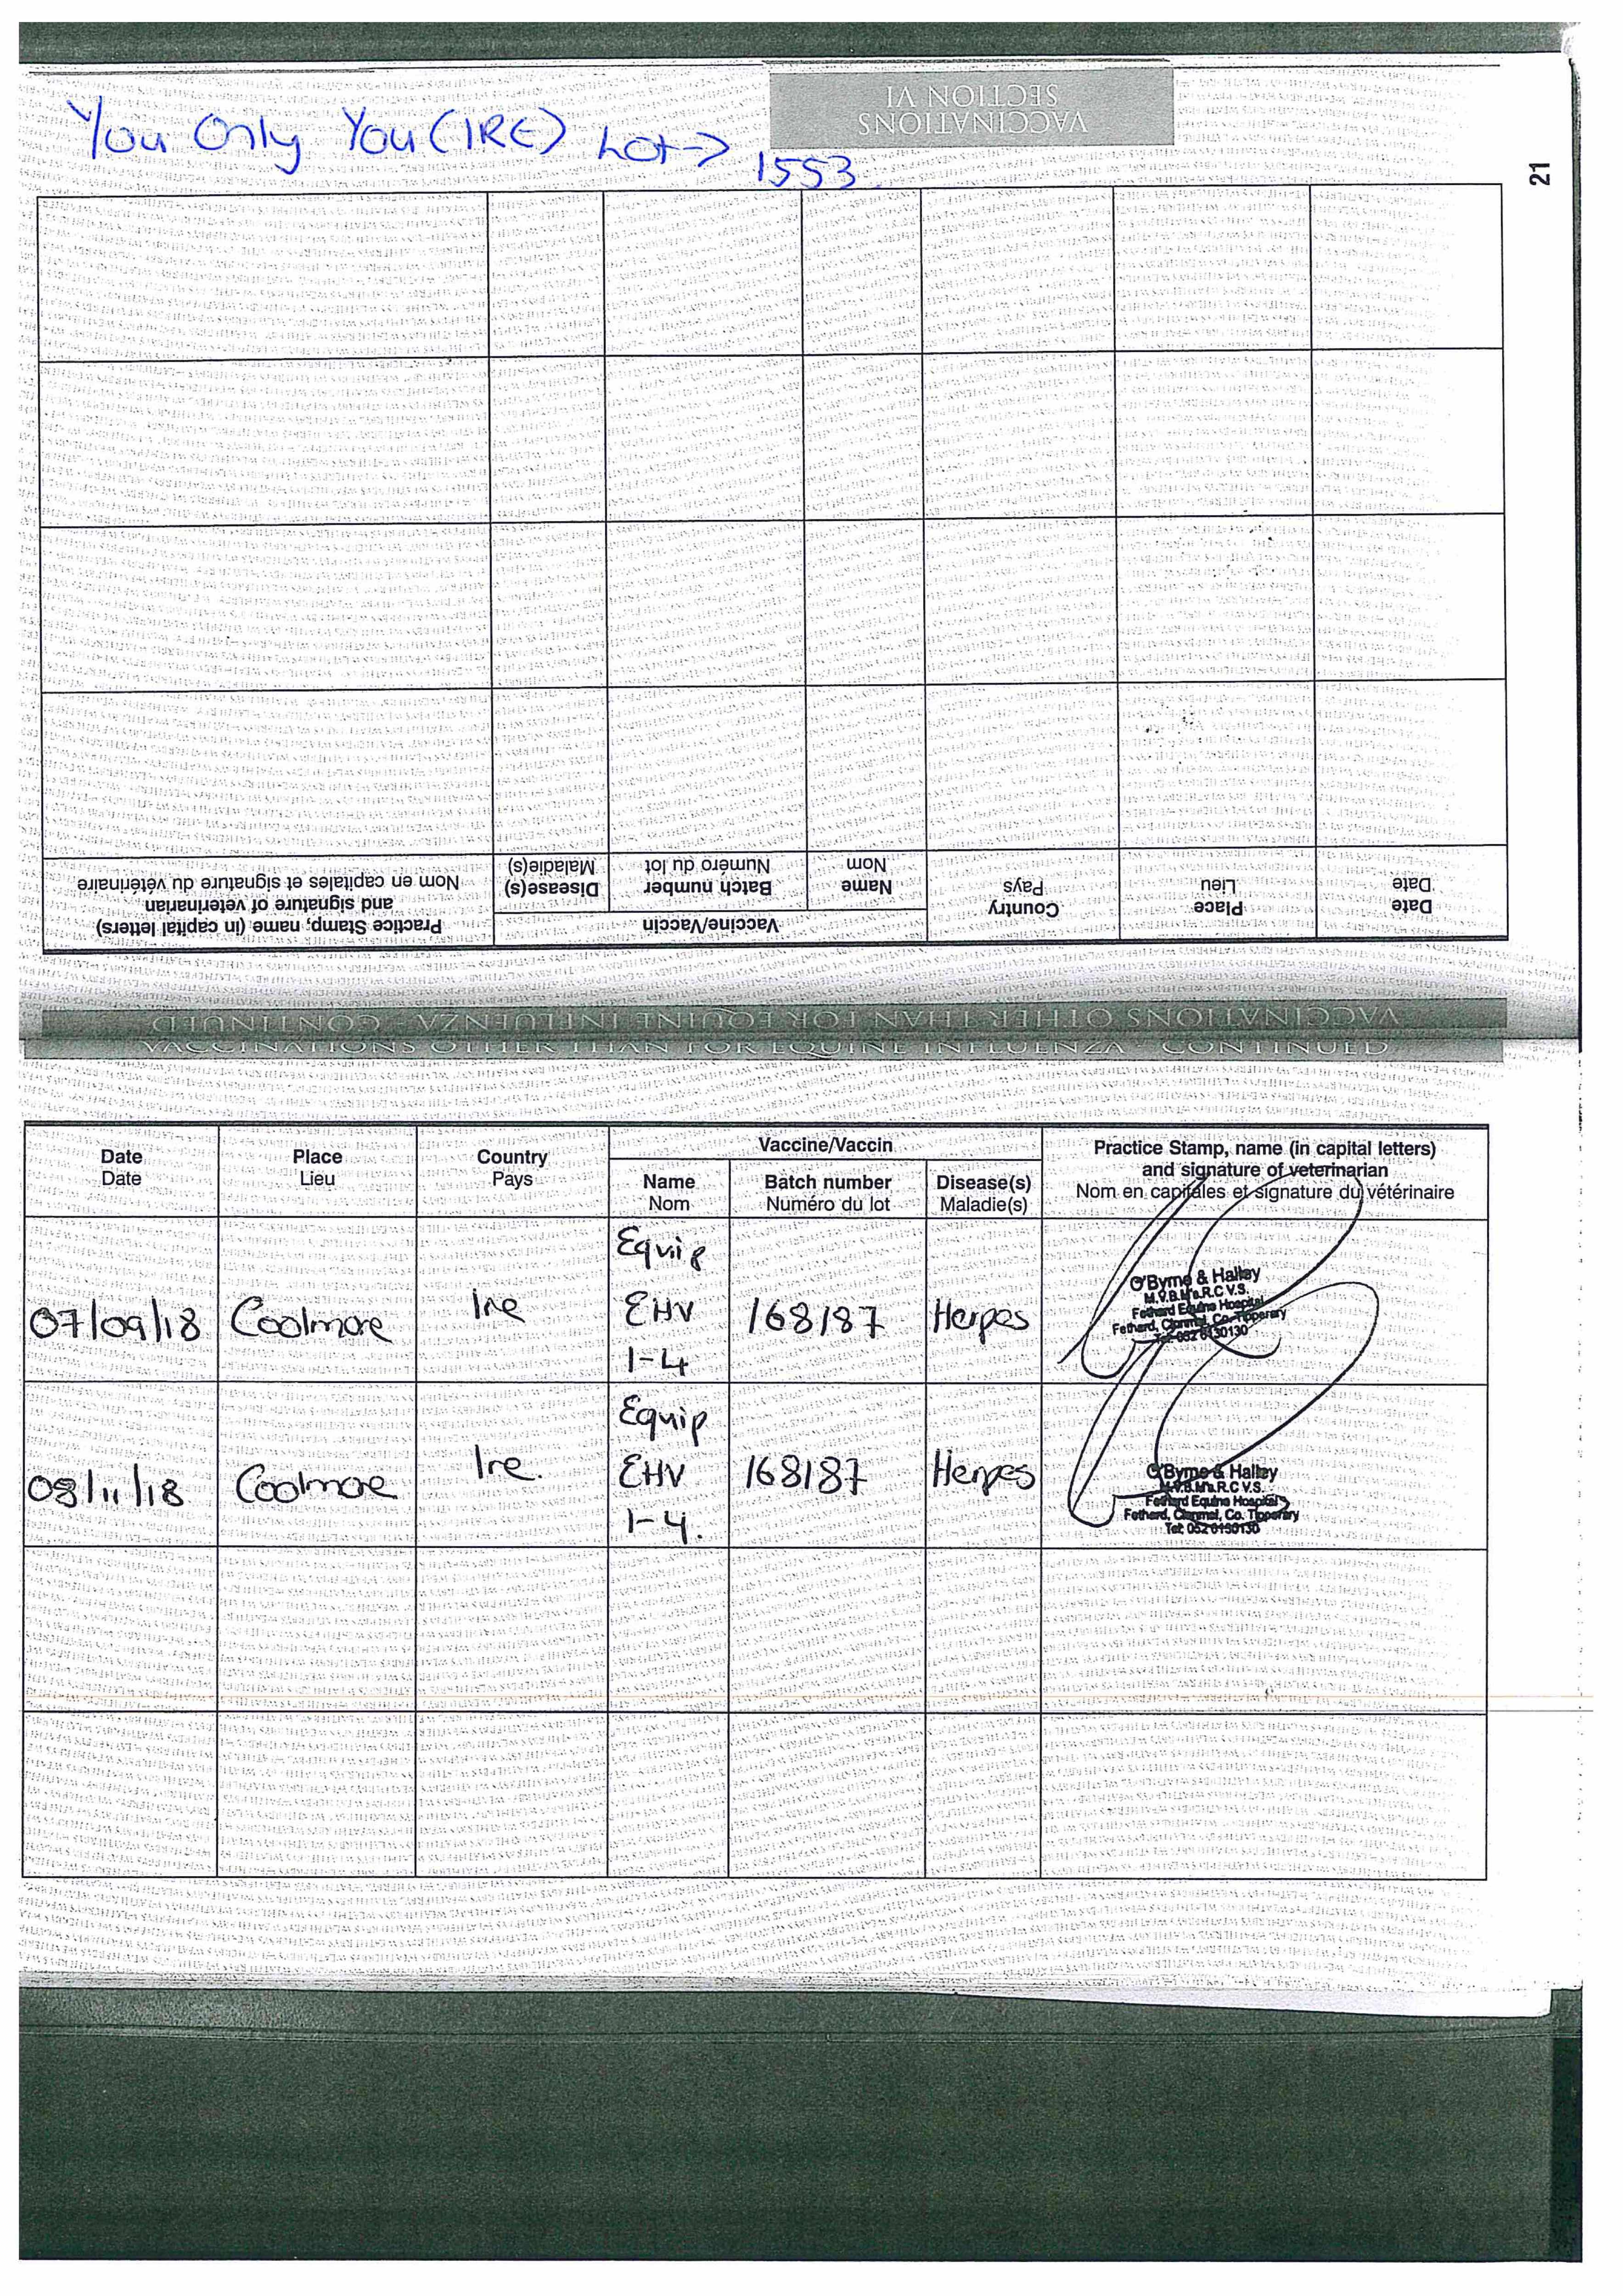 You Only You (IRE) Lot->
1553.
VACCINATIONS
SECTION VI
21
Practice Stamp, name (in capital letters)
and signature of veterinarian
Nom en capitales et signature du vétérinaire
Vaccine/Vaccin
Disease(s)
Maladie(s)
Batch number
Numéro du lot
Name
Nom
Country
Pays
Place
Lieu
Date
Date
VACCINATIONS OTHER THAN FOR EQUINE INFLUENZA - CONTINUED
VACCINATIONS OTHER THAN FOR EQUINE INFLUENZA - CONTINUED
Date
Date
Place
Lieu
Country
Pays
Vaccine/Vaccin
Name
Nom
Batch number
Numéro du lot
Disease(s)
Maladie(s)
Practice Stamp, name (in capital letters)
and signature of veterinarian
Nom en capitales et signature du vétérinaire
07/09/18 Coolmore Ire Equip EHV 1-4 168187 Herpes
O'Byrne & Halley
M.V.B. M's.R.C V.S.
Fethard Equine Hospital
Fethard, Clonmel, Co. Tipperary
Tel: 052 6130130
08/11/18 Coolmore Ire. Equip EHV 1-4. 168187 Herpes
O'Byrne & Halley
M.V.B. M's.R.C V.S.
Fethard Equine Hospital
Fethard, Clonmel, Co. Tipperary
Tel: 052 6130130